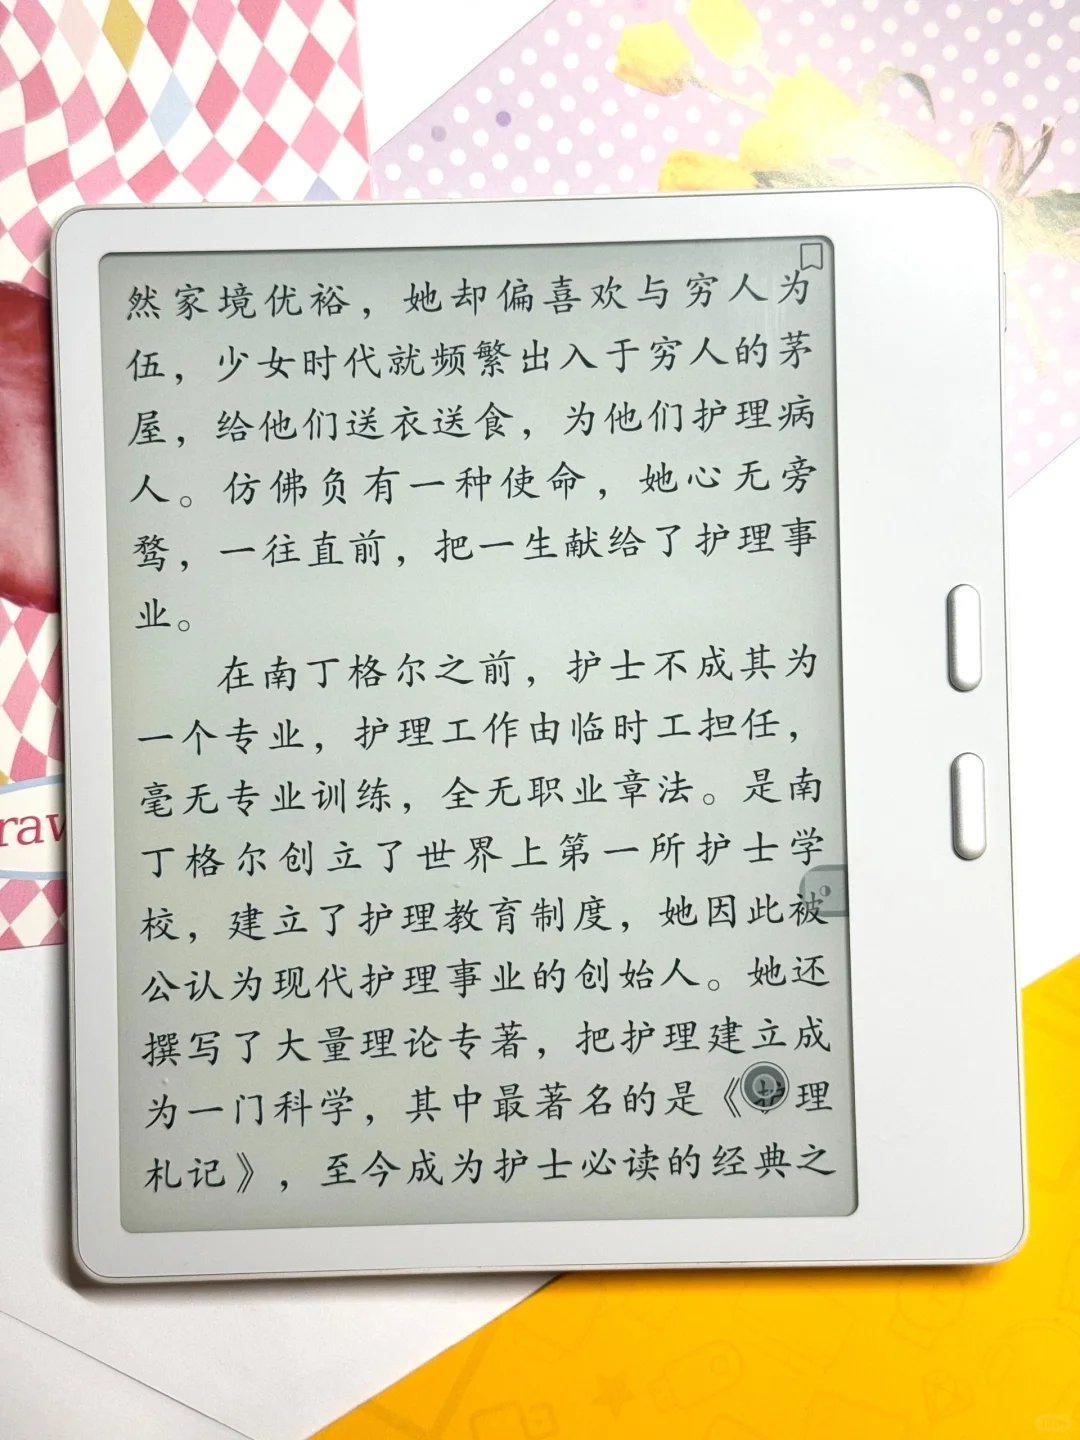 然家境优裕，她却偏喜欢与穷人为
伍，少女时代就频繁出入于穷人的茅
屋，给他们送衣送食，为他们护理病
人。仿佛负有一种使命，她心无旁
骛，一往直前，把一生献给了护理事
业。
在南丁格尔之前，护士不成其为
一个专业，护理工作由临时工担任，
毫无专业训练，全无职业章法。是南
丁格尔创立了世界上第一所护士学
校，建立了护理教育制度，她因此被
公认为现代护理事业的创始人。她还
撰写了大量理论专著，把护理建立成
为一门科学，其中最著名的是《护理
札记》，至今成为护士必读的经典之